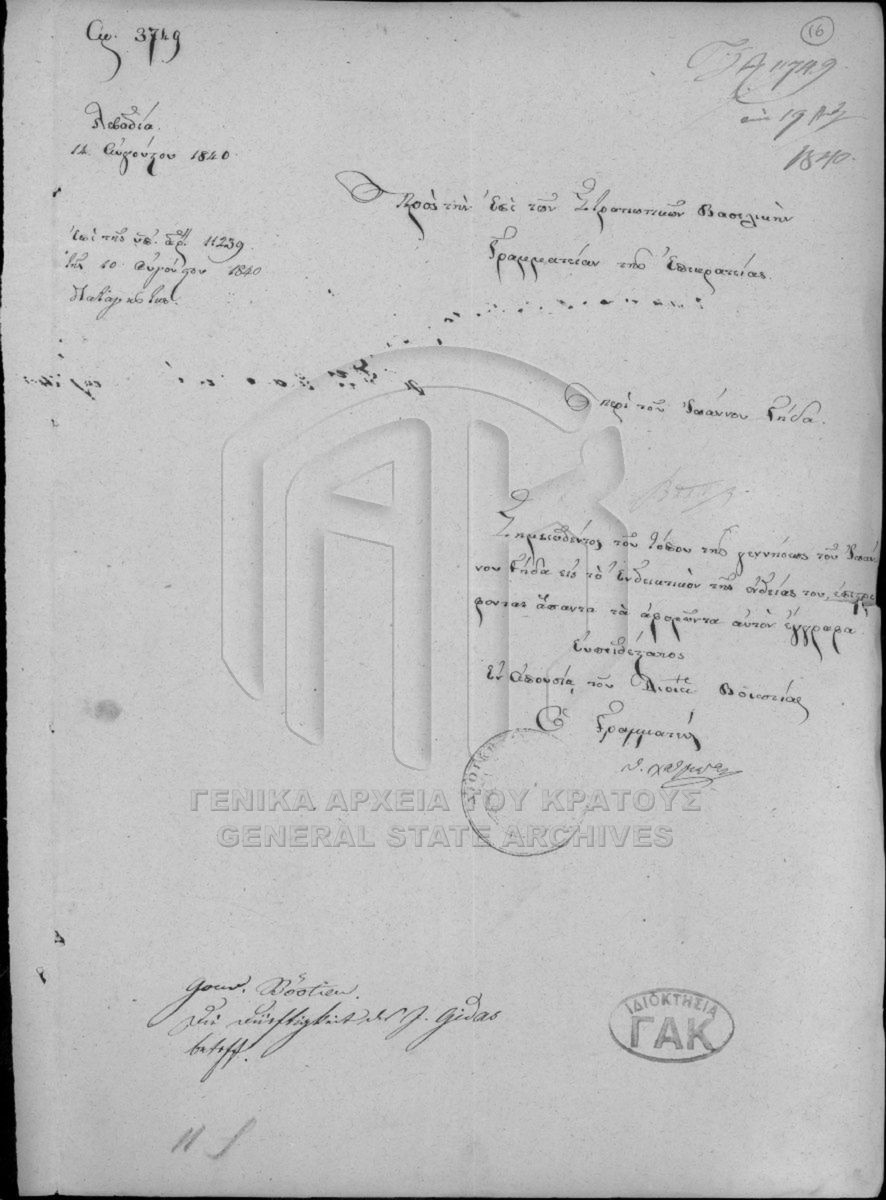 16
Αρ. 3749
11749
19
1840
Λεβαδία
14 Αὐγούστου 1840
Πρὸς τὴν ἐπὶ τῶν Στρατιωτικῶν Βασιλικὴν
Γραμματείαν τῆς Ἐπικρατείας
Ἐπὶ τῆς ὑπ. ἀρ. 11239
τῆς 10 Αὐγούστου 1840
περὶ τοῦ Ἰωάννου Γκίδα
Σημειωθέντος τοῦ τόπου τῆς γεννήσεως τοῦ Ἰωάν
νου Γκίδα εἰς τὸ ἐνδεικτικὸν τῆς ἐνδείας του, ἐπιστρέ
φονται ἅπαντα τὰ ἀφορῶντα αὐτὸν ἔγγραφα
Εὐπειθέστατος
Ἐν ἀπουσίᾳ τοῦ Διοικ Βοιωτίας
Ὁ Γραμματεὺς
ΓΕΝΙΚΑ ΑΡΧΕΙΑ ΤΟΥ ΚΡΑΤΟΥΣ
GENERAL STATE ARCHIVES
Gouv. Böotien.
Die Dürftigkeit des J. Gidas
betreff.
ΙΔΙΟΚΤΗΣΙΑ
ΓΑΚ